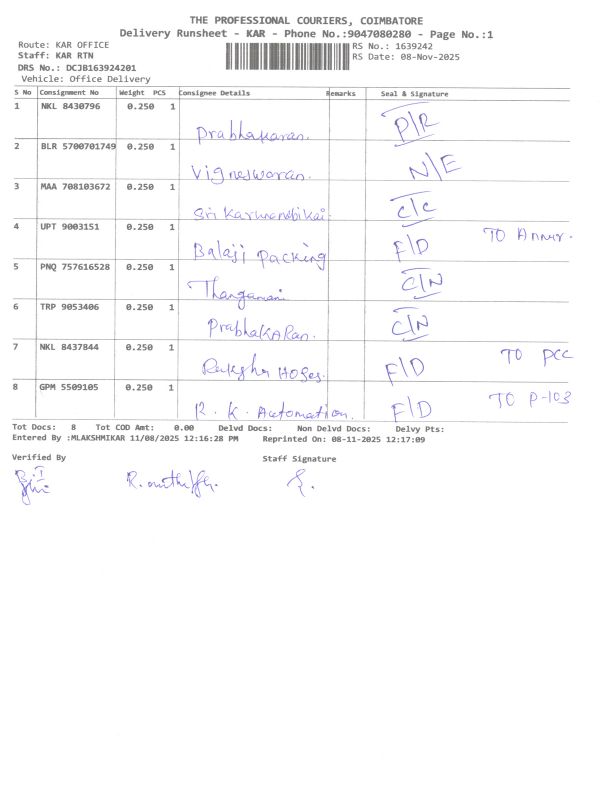 THE PROFESSIONAL COURIERS, COIMBATORE
Delivery Runsheet - KAR - Phone No.:9047080280 - Page No.:1
Route: KAR OFFICE RS No.: 1639242
Staff: KAR RTN RS Date: 08-Nov-2025
DRS No.: DCJB163924201
Vehicle: Office Delivery
S No Consignment No Weight PCS Consignee Details Remarks Seal & Signature
1 NKL 8430796 0.250 1 Prabhakaran. P/R
2 BLR 5700701749 0.250 1 Vigneswaran. N/E
3 MAA 708103672 0.250 1 Sri Karumanabikai. C/C
4 UPT 9003151 0.250 1 Balaji Packing F/D TO Annur.
5 PNQ 757616528 0.250 1 Thangamani C/N
6 TRP 9053406 0.250 1 PrabhakaRan. C/N
7 NKL 8437844 0.250 1 Raksha Hoses. F/D TO PCC
8 GPM 5509105 0.250 1 R. K. Automation. F/D TO P-103
Tot Docs: 8 Tot COD Amt: 0.00 Delvd Docs: Non Delvd Docs: Delvy Pts:
Entered By :MLAKSHMIKAR 11/08/2025 12:16:28 PM Reprinted On: 08-11-2025 12:17:09
Verified By Staff Signature